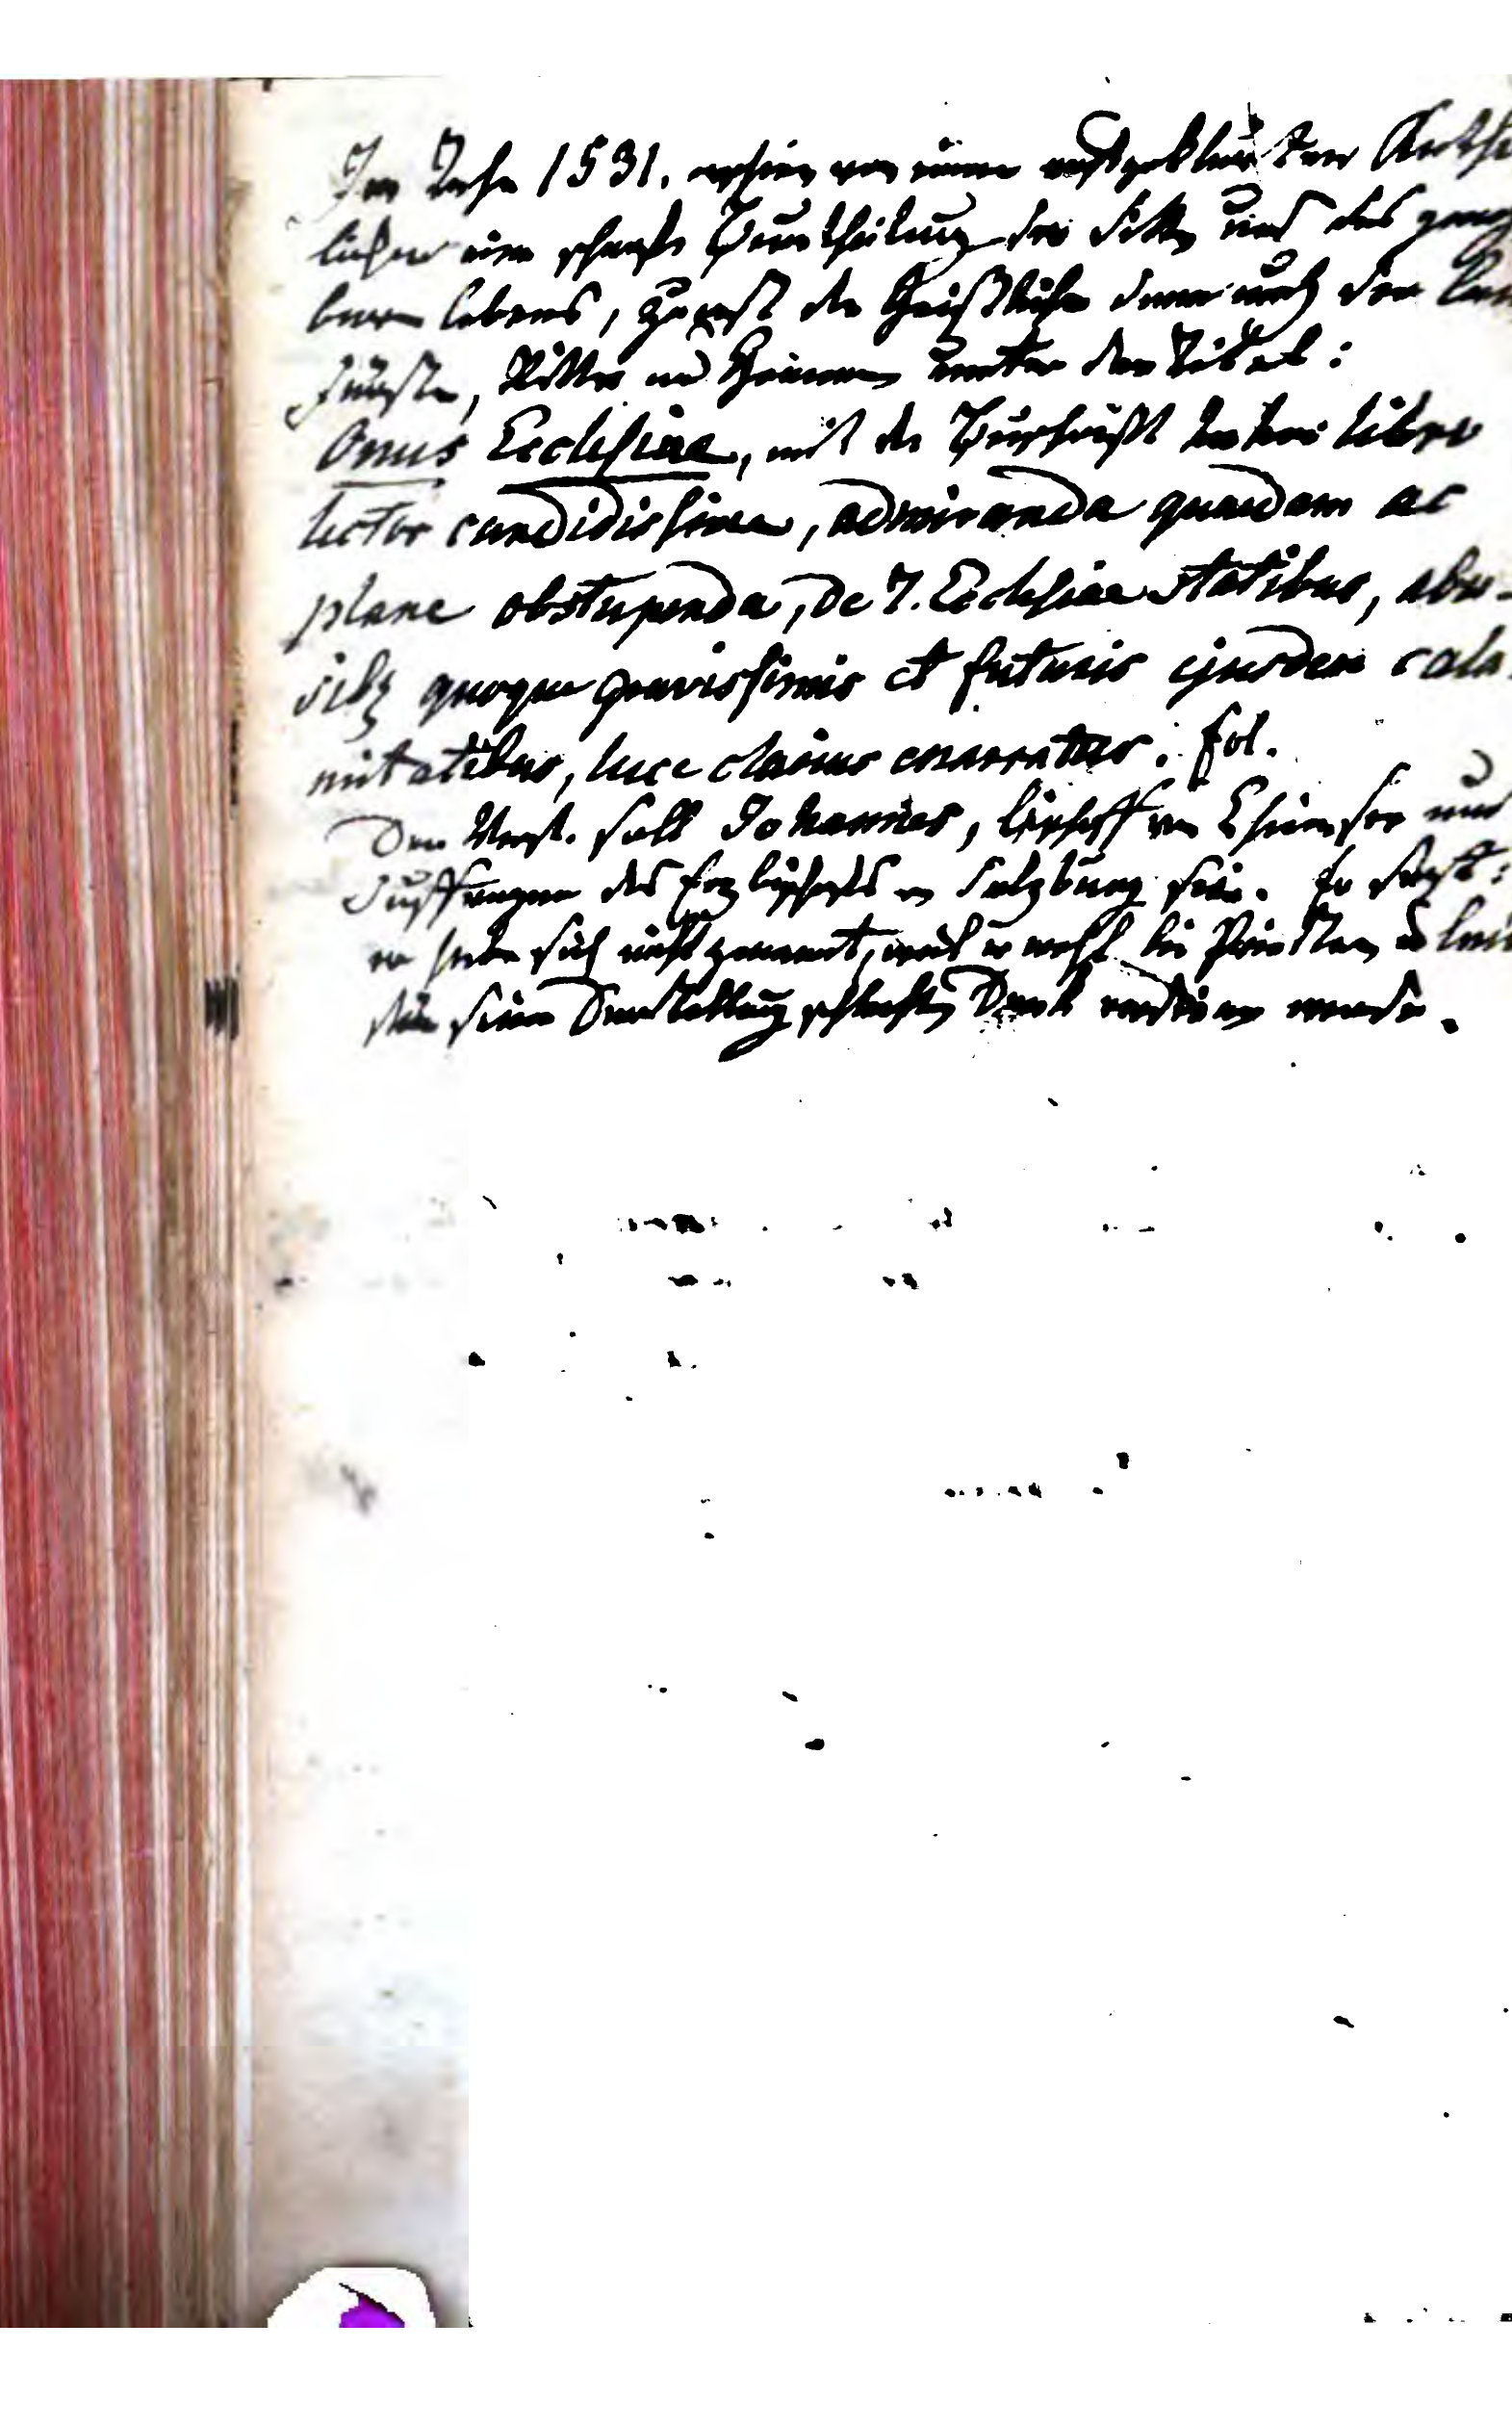 Im Jahr 1531. erschien von einem aufgeklärten Katho
lischen eine scharfe Beurtheilung der Sitten und des ganz
baren Lebens, zuerst der Geistlichen dann auch der Lan
fürsten, Ritter und Gemeinen unter dem Titel:
Onus Ecclesiae, mit der Beischrift libro
lector candidissime, admiranda quaedam ac
plane obstupenda, de 7. Ecclesiae statibus, abu-
sibz quoque gravissimis et futuris ejusdem cala-
mitatibus, luce clarius enarratur. fol.
Der Verf. soll Johannes, Bischoff von Chiemsee und
Suffragan des Erzbischofs in Salzburg sein. Er sagt:
er habe sich nicht genannt, weil er wohl bei Priestern u Lai
seine Darstellung schlechten Dank verdienen werde.